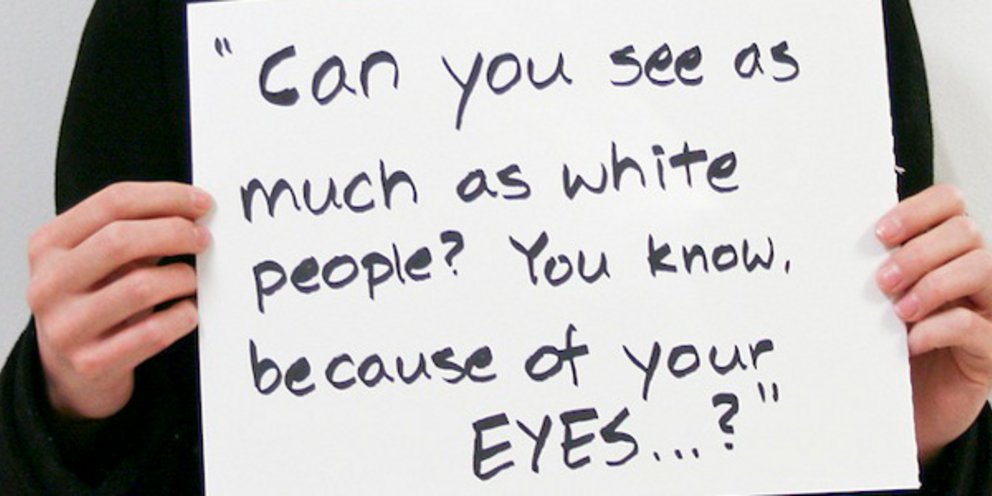 "Can you see as
much as white
people? You know,
because of your
EYES...?"